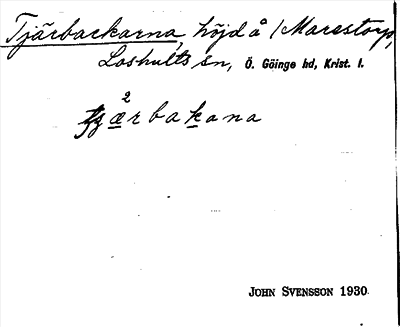 Tjärbackarna, höjd å Marestorp,
Loshults sn, Ö. Göinge hd, Krist. l.
2
ærbakana
JOHN SVENSSON 1930.